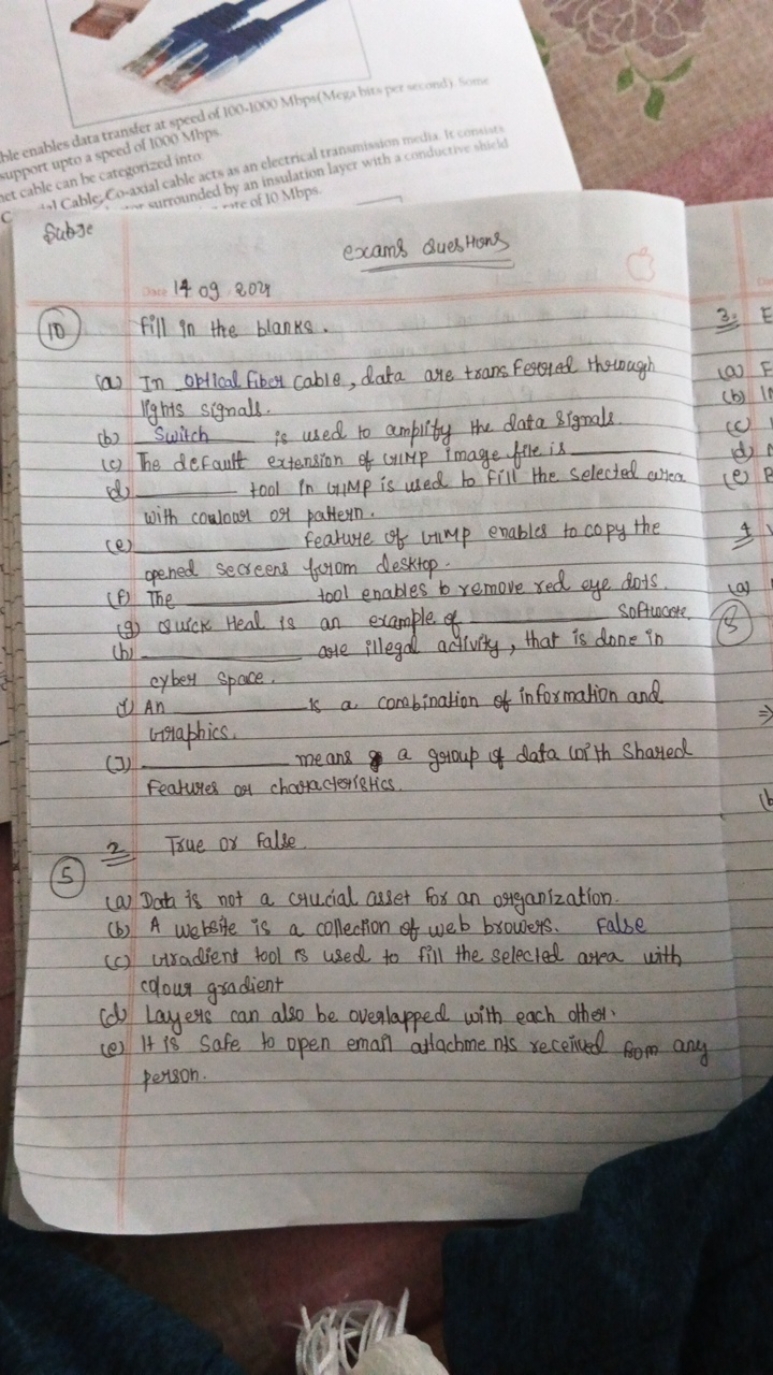 ble enables data transfer at speed of 100-1000 Mbps(Mega bits per second). Some
support upto a speed of 1000 Mbps.
net cable can be categorized into:
Cable: Co-axial cable acts as an electrical transmission media. It consists
surrounded by an insulation layer with a conductive shield
rate of 10 Mbps.
Subje
exams Questions
Date 14 09 2021
10 Fill in the blanks.
(a) In optical fiber cable, data are transferred through
lights signals.
(b) Switch is used to amplify the data signals.
(c) The default extension of GIMP image file is
(d) tool in GIMP is used to fill the selected area
with coulour or pattern.
(e) feature of GIMP enables to copy the
opened secreens from desktop.
(f) The tool enables to remove red eye dots.
(g) Quick Heal is an example of Software.
(h) are illegal activity, that is done in
cyber space.
(i) An is a combination of information and
Graphics.
(J) means a group of data with Shared
Features or characteristics.
2. True or False.
5
(a) Data is not a crucial asset for an organization.
(b) A website is a collection of web browers. False
(c) Gradient tool is used to fill the selected area with
colour gradient
(d) Layers can also be overlapped with each other.
(e) It is Safe to open email attachments received from any
person.
3. E
(a) F
(b) I
(c)
(d)
(e) P
4
(a)
5
(b